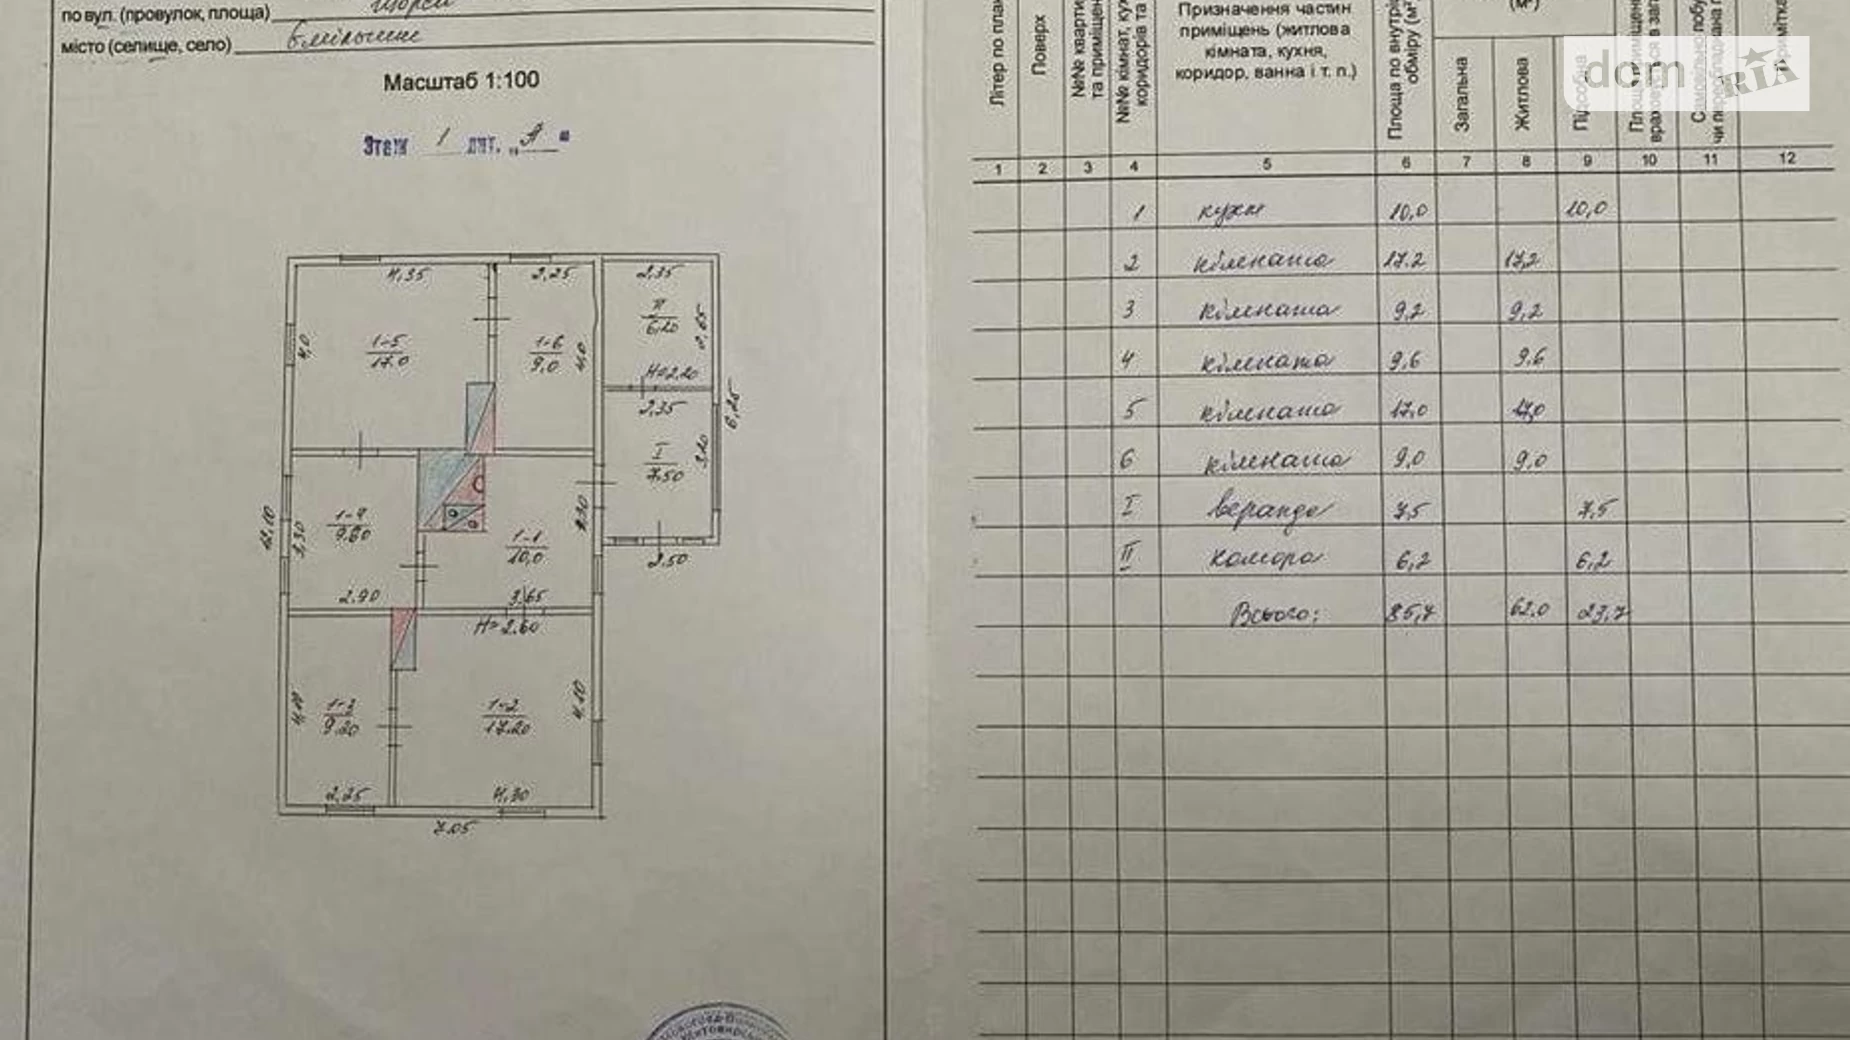 по вул. (провулок, площа)
місто (селище, село)
Масштаб 1:100
Этаж 1 лит. „А"
4,35
2,25
2,35
4,0
1-5
17.0
1-6
9,0
4,0
II
6,20
2,65
H=2,20
2,35
6,25
I
7.50
3,20
1-4
9.60
3,30
12,10
1-1
10,0
2,50
2.90
3,65
H=2.60
1-3
9.20
1-2
17.20
4.10
2,25
4,30
7.05
Літер по план
Поверх
№№ кварти
та приміщен
№№ кімнат, кух
коридорів та
Призначення частин
приміщень (житлова
кімната, кухня,
коридор, ванна і т. п.)
Площа по внутрі
обміру (м²
(м²)
Загальна
Житлова
Підсобна
dom RIA
1 2 3 4 5 6 7 8 9 10 11 12
1 кухн 10,0 10,0
2 кімната 17.2 17,2
3 кімната 9,2 9,2
4 кімната 9,6 9,6
5 кімната 17,0 17,0
6 кімната 9,0 9,0
I веранда 7,5 7,5
II комора 6,2 6,2
Всього: 85,7 62.0 23,7